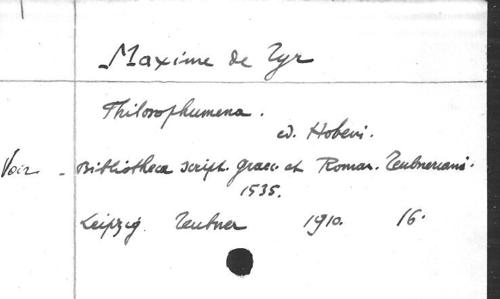 Maxime de Tyr
Philosophumena.
ed. Hobein.
Voir - Bibliotheca script. graec. et Roman. Teubneriana.
1535.
Leipzig. Teubner 1910. 16.